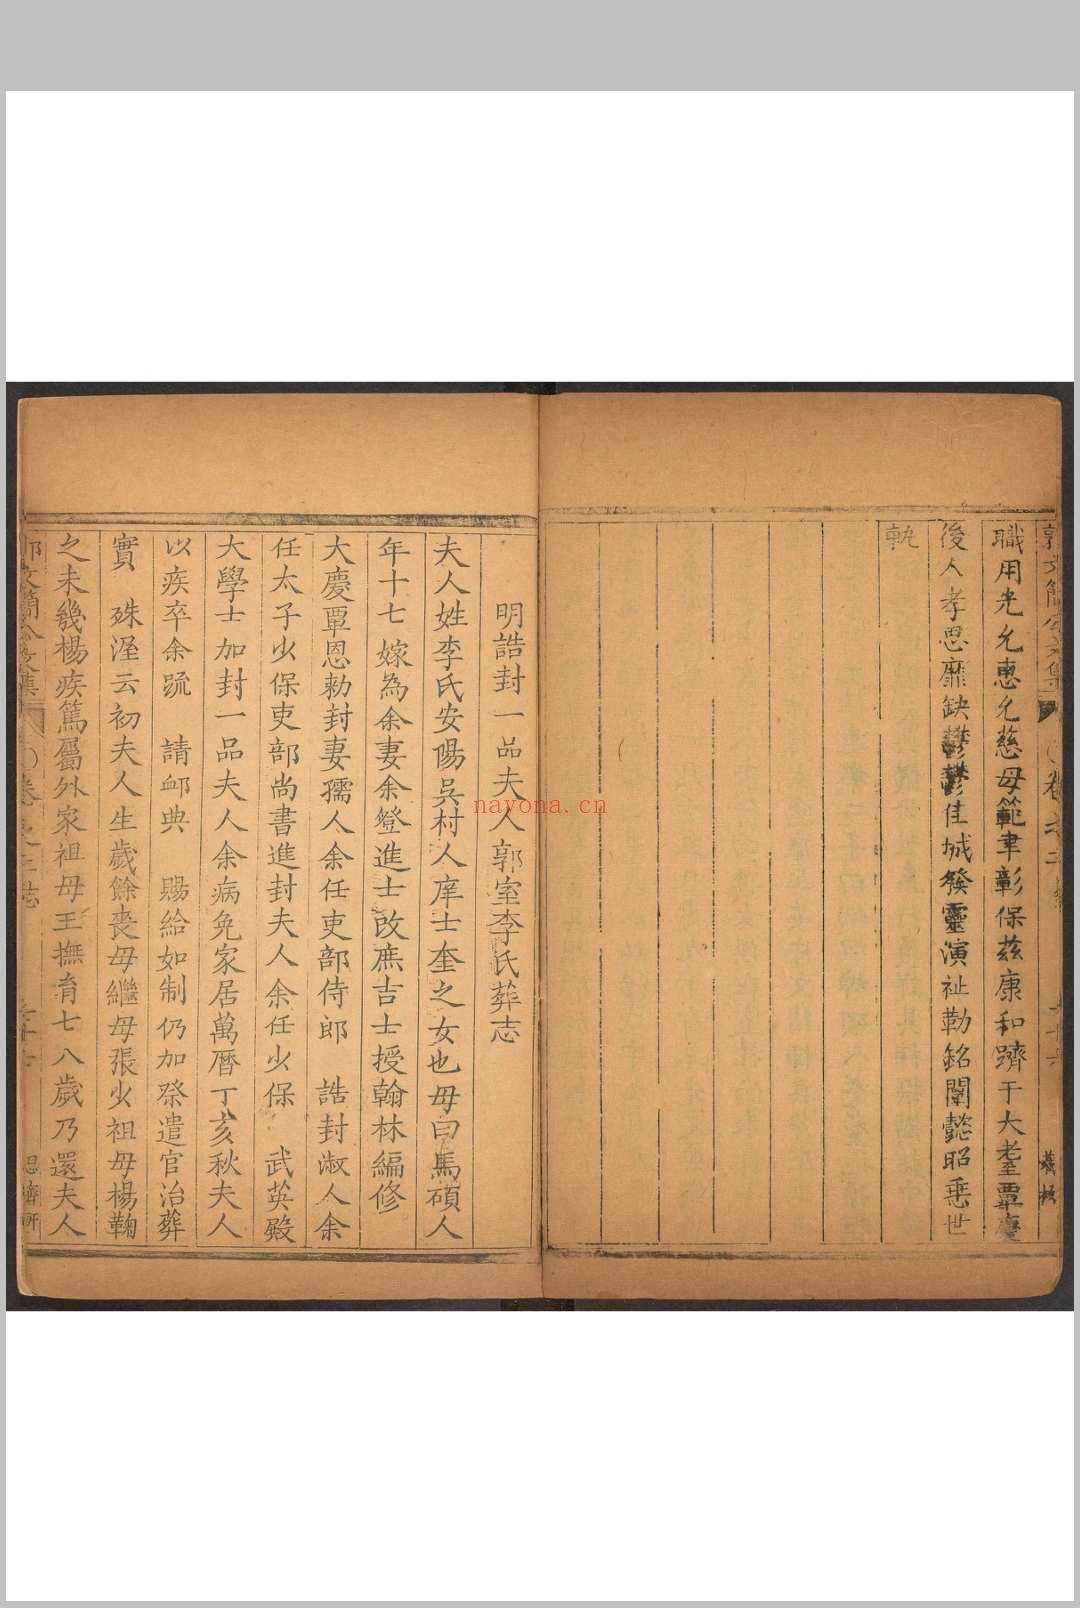 職用光允惠允慈母範聿彰保兹康和躋于大耋覃慶
後人孝思靡缺鬱鬱佳城發靈演祉勒銘闈懿昭垂世
軌
明誥封一品夫人郭室李氏葬志
夫人姓李氏安陽吳村人庠士奎之女也母曰馬碩人
年十七嫁為余妻余登進士改庶吉士授翰林編修
大慶覃恩勑封妻孺人余任吏部侍郎 誥封淑人余
任太子少保吏部尚書進封夫人余任少保 武英殿
大學士加封一品夫人余病免家居萬曆丁亥秋夫人
以疾卒余疏 請卹典 賜給如制仍加祭遣官治葬
實 殊渥云初夫人生歲餘喪母繼母張少祖母楊鞠
之未幾楊疾篤屬外家祖母王撫育七八歲乃還夫人
郭文簡公文集
nayona.cn